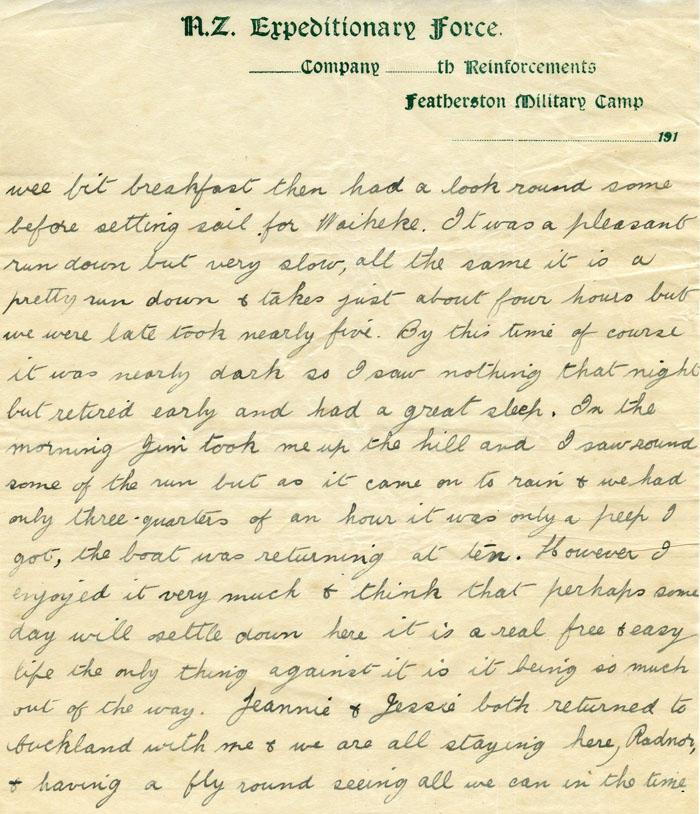 N.Z. Expeditionary Force.
Company th Reinforcements
Featherston Military Camp
191
wee bit breakfast then had a look round some
before setting sail for Waiheke. It was a pleasant
run down but very slow, all the same it is a
pretty run down & takes just about four hours but
we were late took nearly five. By this time of course
it was nearly dark so I saw nothing that night
but retired early and had a great sleep. In the
morning Jim took me up the hill and I saw round
some of the run but as it came on to rain & we had
only three-quarters of an hour it was only a peep I
got, the boat was returning at ten. However I
enjoyed it very much & think that perhaps some
day will settle down here it is a real free & easy
life the only thing against it is it being so much
out of the way. Jeannie & Jessie both returned to
Auckland with me & we are all staying here, Radnor,
& having a fly round seeing all we can in the time